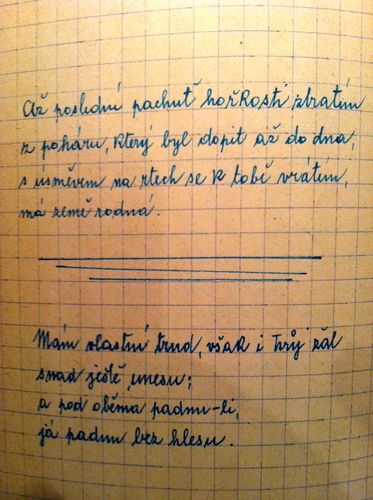 Až poslední pachuť hořkosti zbratím
z poháru, který byl dopit až do dna,
s úsměvem na rtech se k tobě vrátím,
má země rodná.
Mám vlastní trud, však i Tvůj žal
snad ještě unesu;
a pod oběma padnu-li,
já padnu bez hlesu.